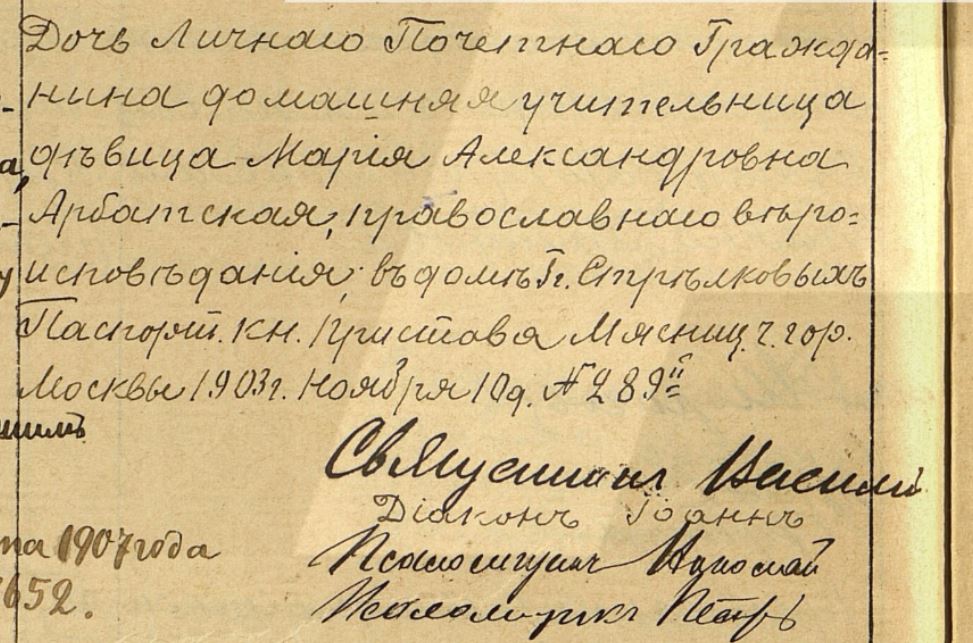 Дочь Личнаго Почетнаго Гражда=
нина домашняя учительница
дѣвица Марія Александровна
Арбатская, православнаго вѣро=
исповѣданія, въ домѣ Гг. Стрѣлковыхъ
Паспорт. кн. Пристава Мясниц. ч. гор.
Москвы 1903 г. Ноября 10 д. № 289
Священник Василий
Діаконъ Іоаннъ
Псаломщикъ Николай
Псаломщикъ Петръ
1907 года
652.